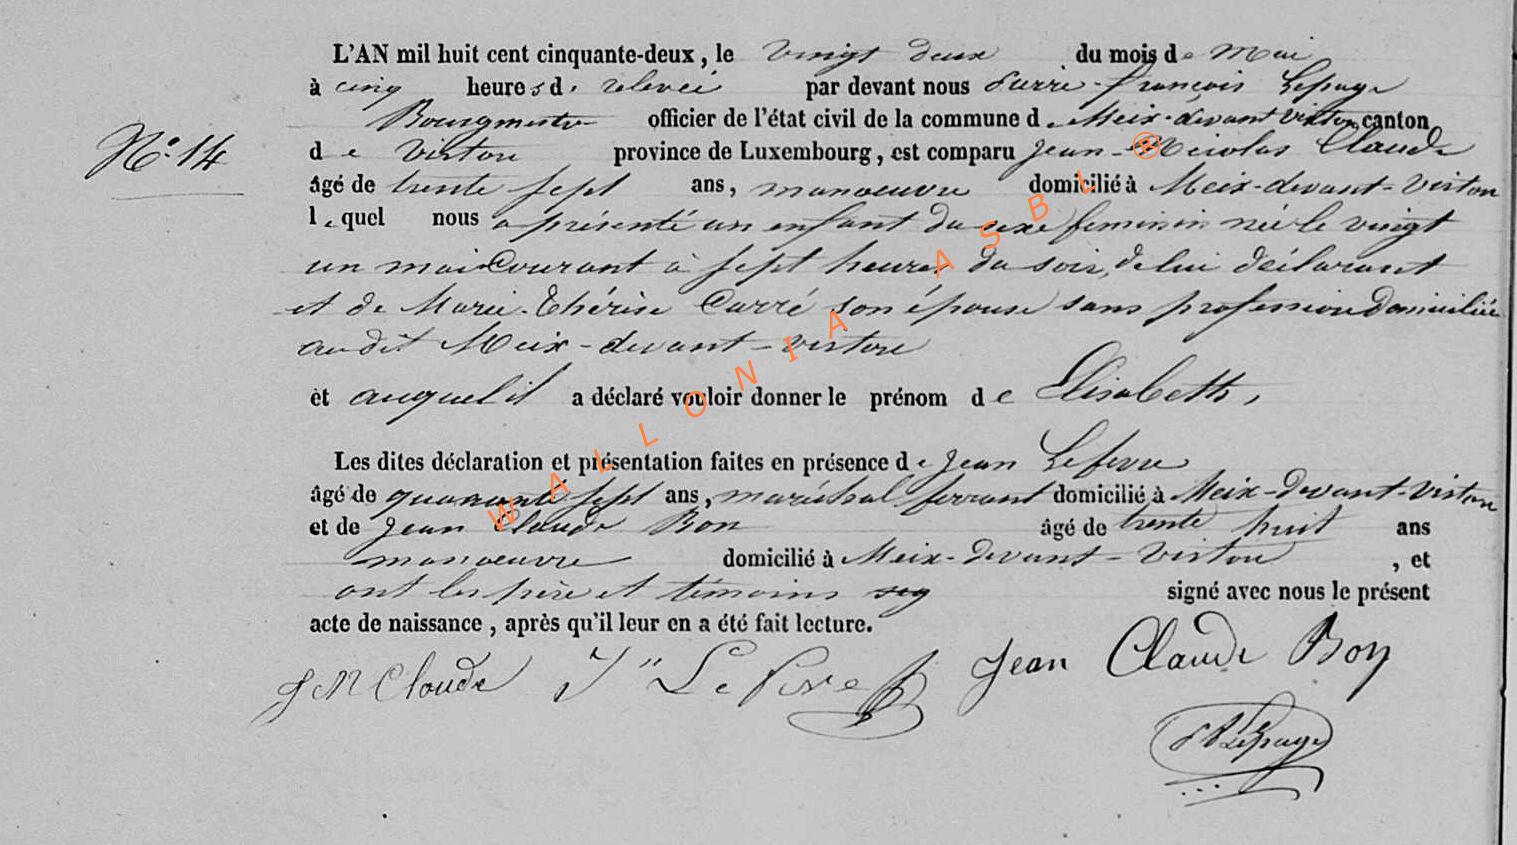 L'AN mil huit cent cinquante-deux, le vingt deux du mois de Mai
à cinq heures de relevée par devant nous Pierre-François Lepage
Bourgmestre officier de l'état civil de la commune de Meix-devant Virton canton
N° 14
de Virton province de Luxembourg, est comparu Jean-Nicolas Claude
âgé de trente sept ans, manoeuvre domicilié à Meix-devant-Virton
lequel nous a présenté un enfant du sexe feminin née le vingt
un mai courant à sept heures du soir, de lui déclarant
et de Marie-Thérèse Carré son épouse sans profession domiciliée
audit Meix-devant-virton
et auquel il a déclaré vouloir donner le prénom de Elisabeth,
Les dites déclaration et présentation faites en présence de Jean Lefevre
âgé de quarante sept ans, maréchal ferrant domicilié à Meix-devant-virton
et de Jean Claude Bon âgé de trente huit ans
manoeuvre domicilié à Meix-devant-virton, et
ont les père et témoins sig signé avec nous le présent
acte de naissance, après qu'il leur en a été fait lecture.
J N Claude Jn Lefevre Jean Claude Bon
PF Lepage
WALLONIA ASBL ®